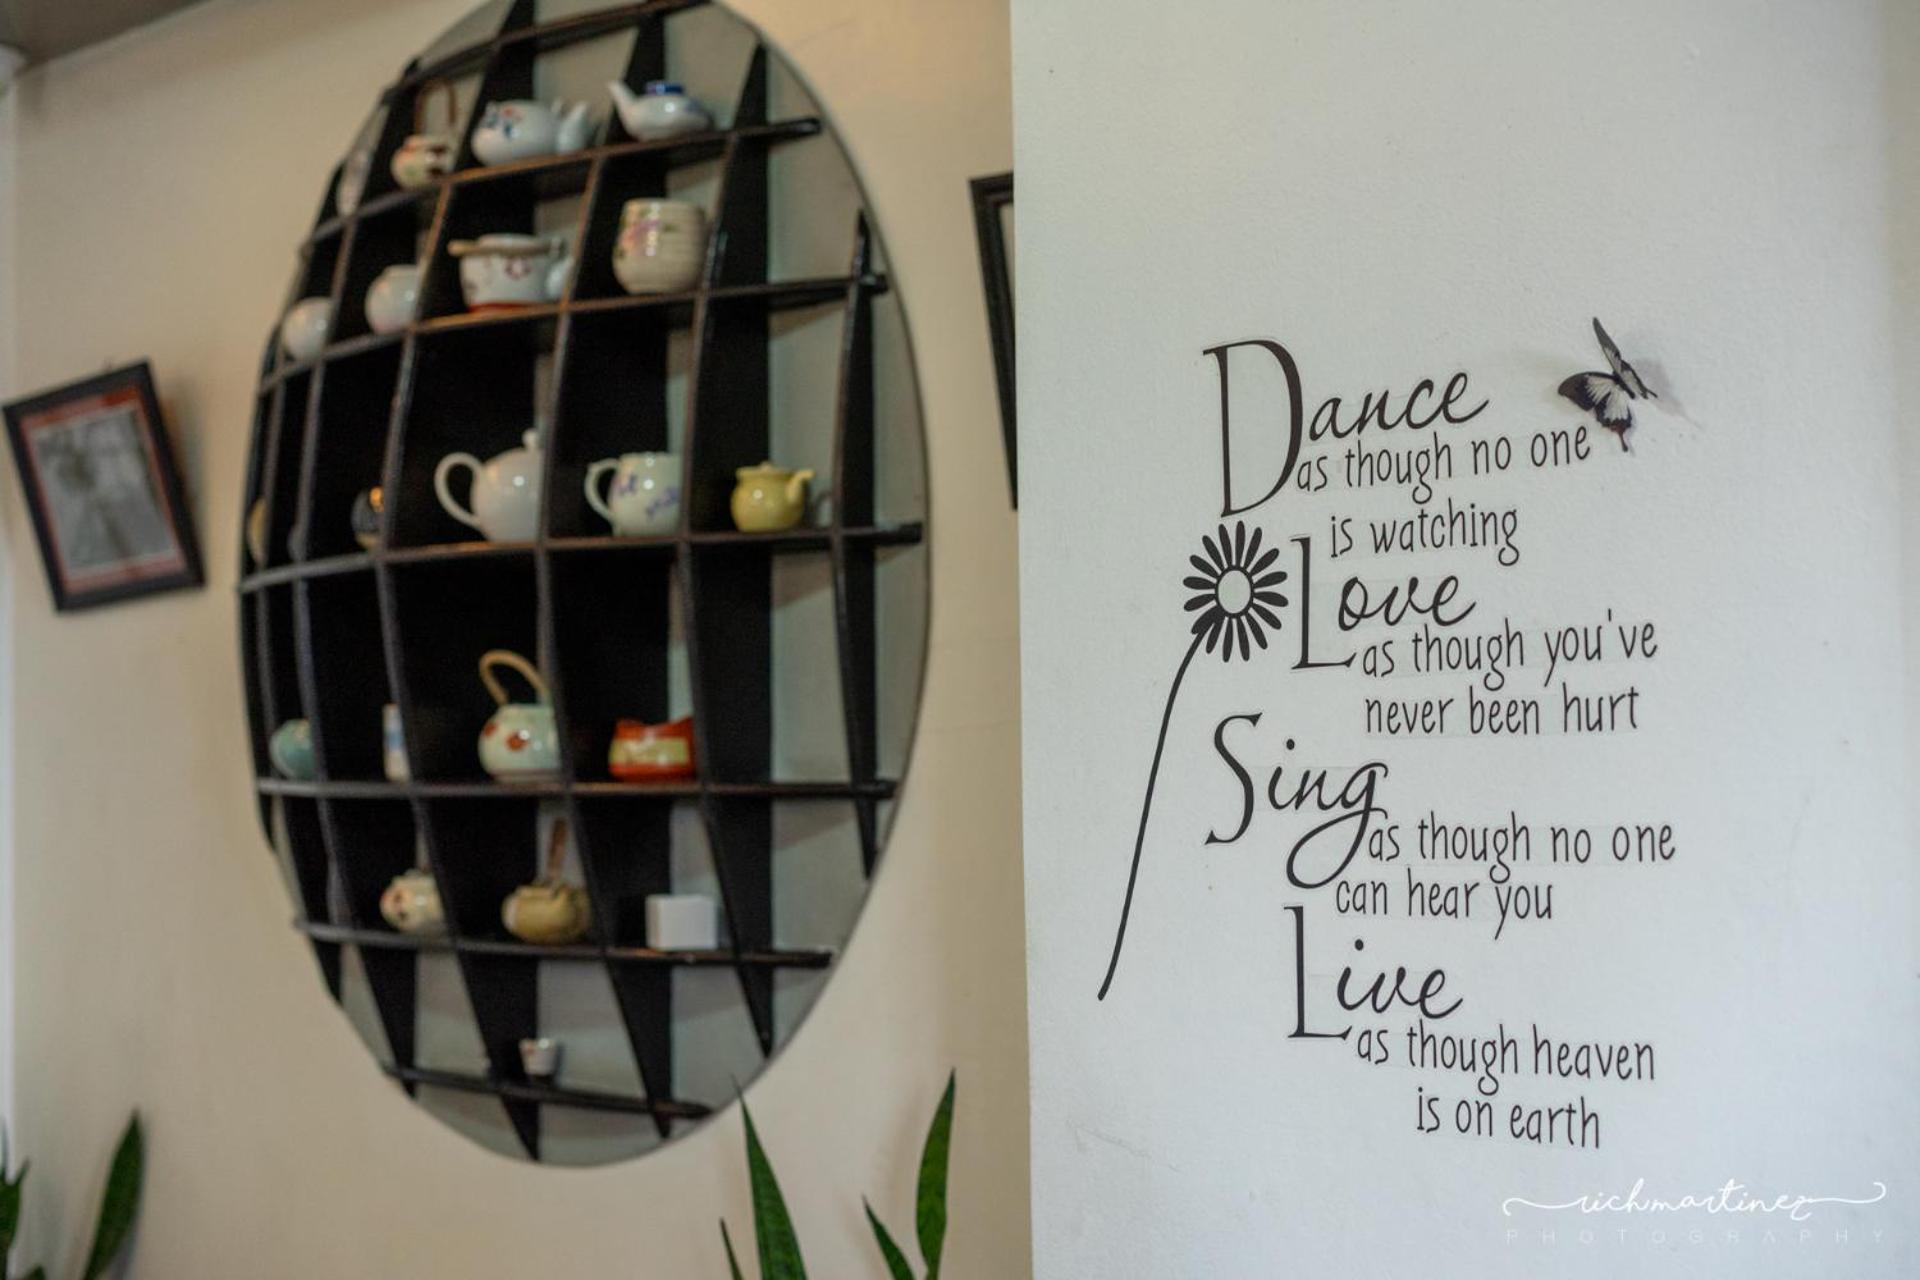 Dance
as though no one
is watching
Love
as though you've
never been hurt
Sing
as though no one
can hear you
Live
as though heaven
is on earth
richmartinez
PHOTOGRAPHY